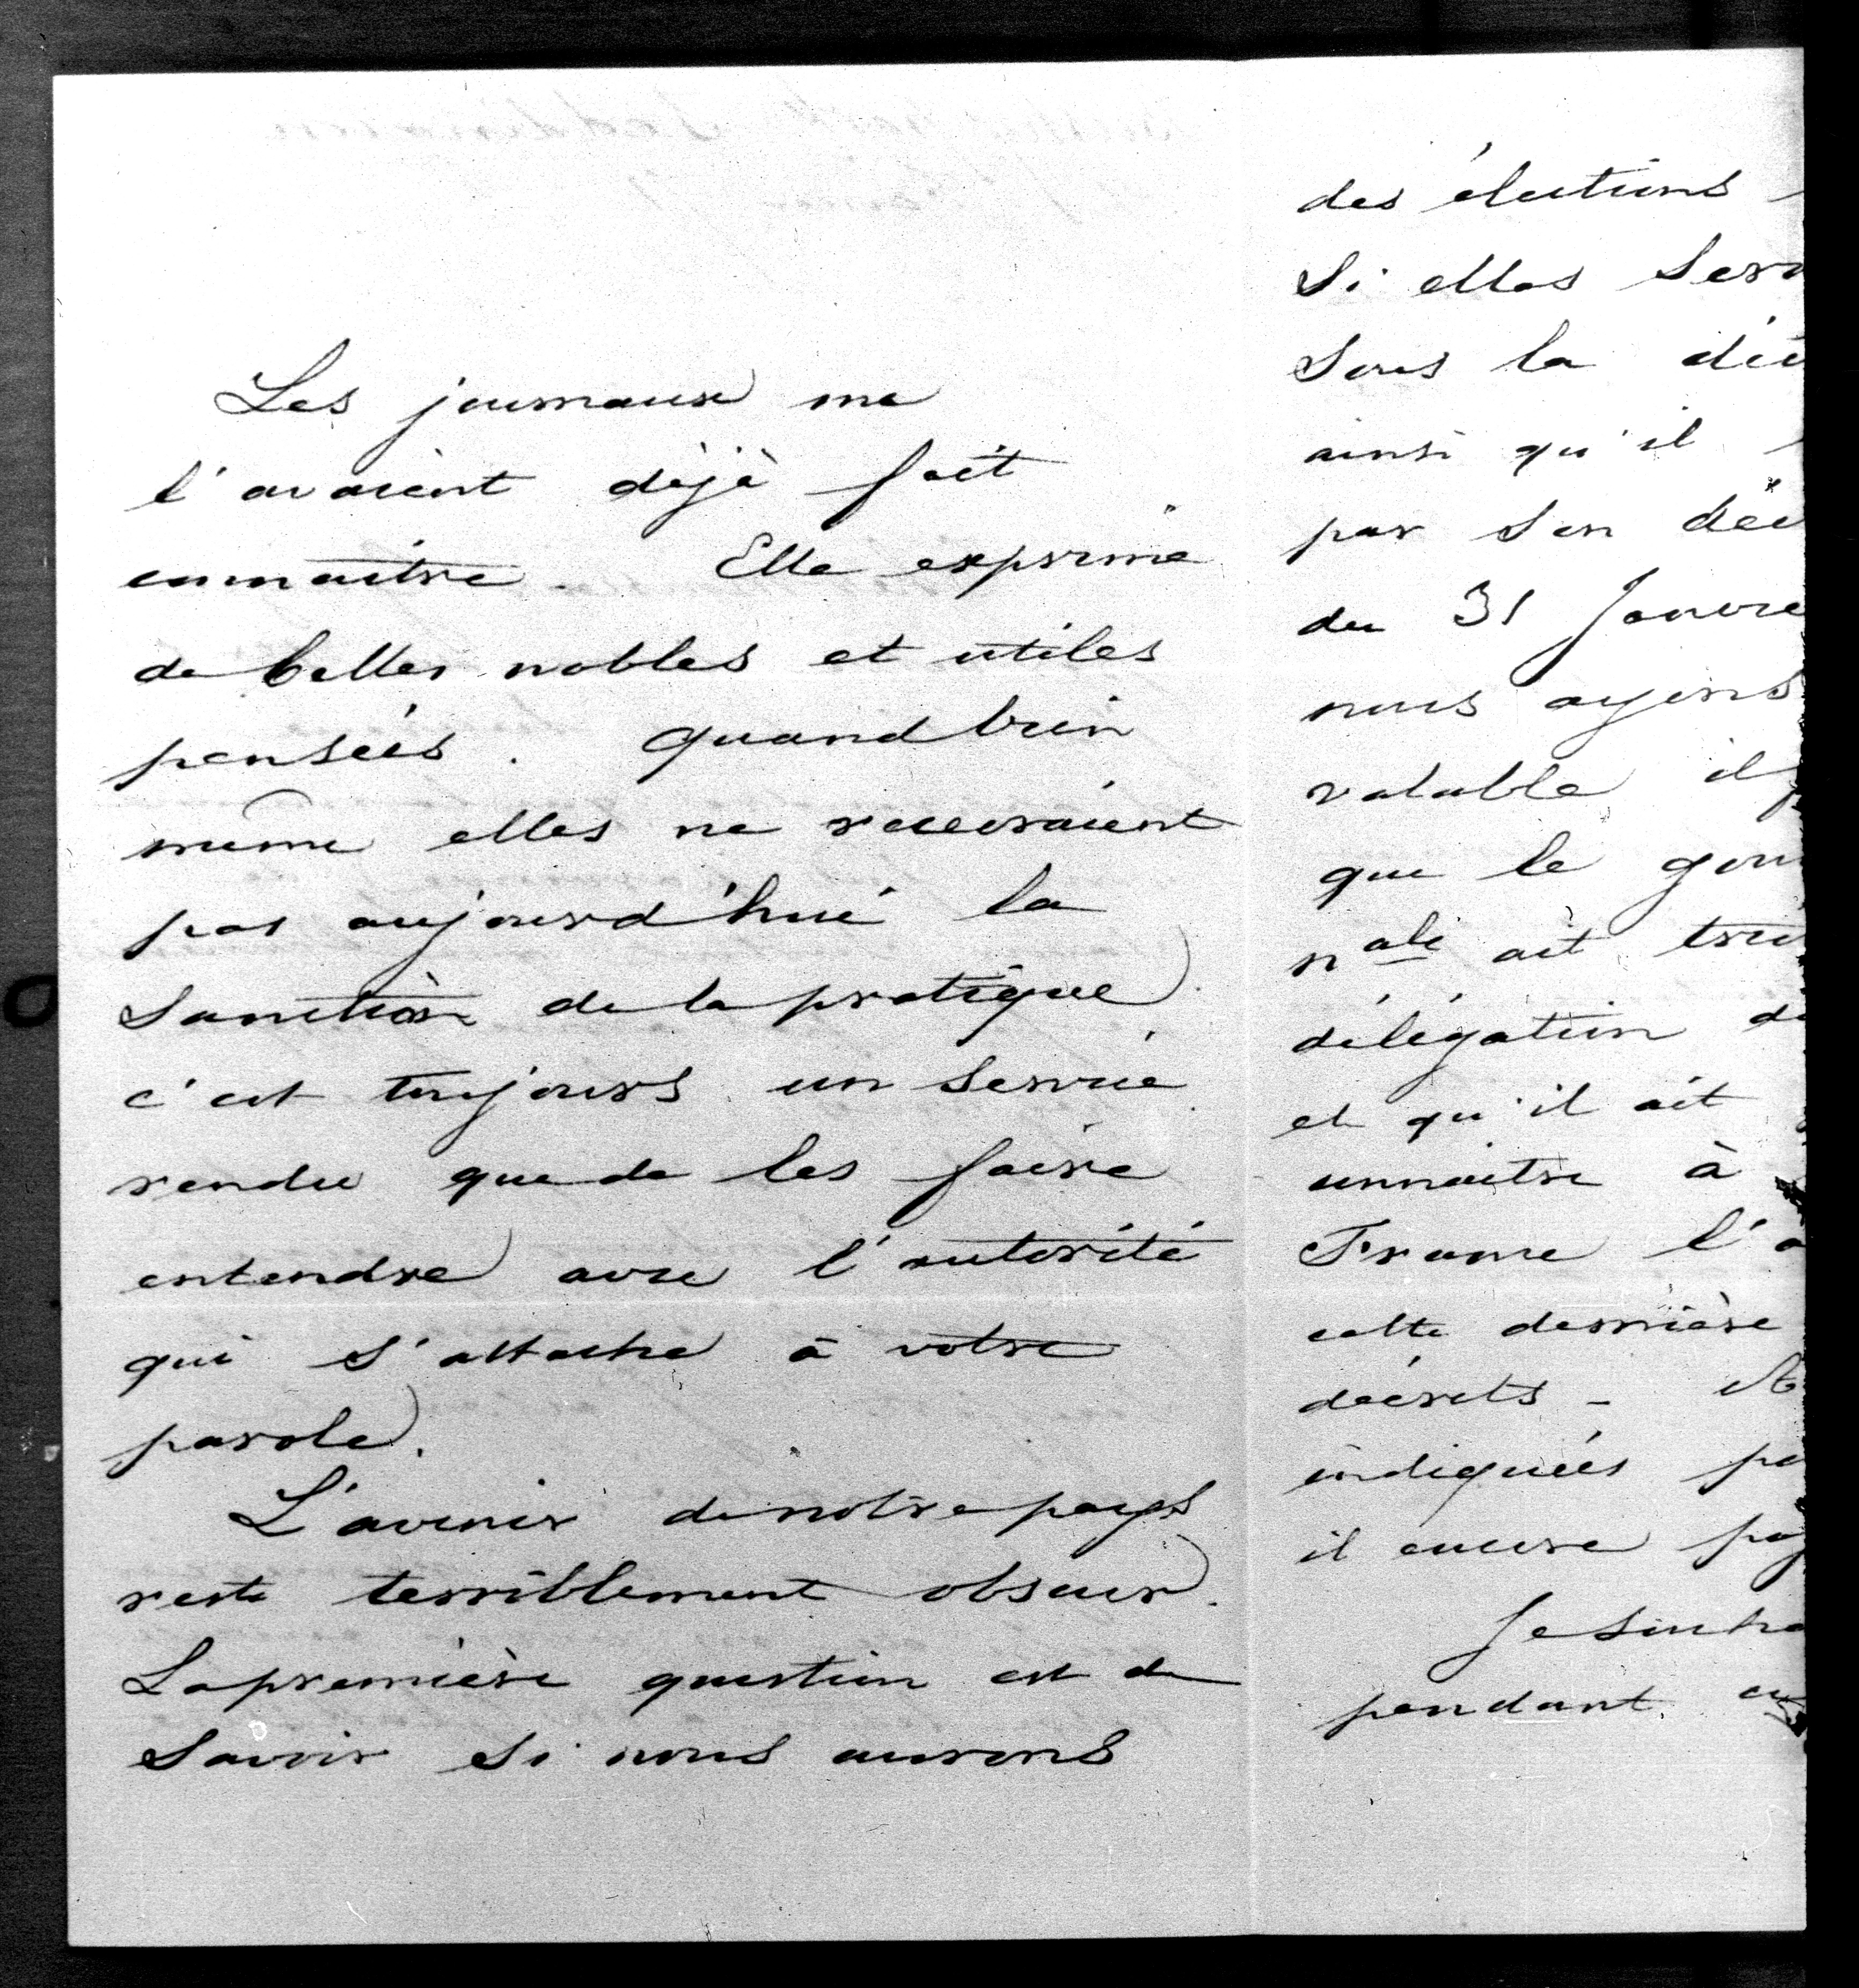 Les journaux me
l'avaient déjà fait
connaitre. Elle exprime
de belles nobles et utiles
pensées. quand bien
même elles ne recevraient
pas aujourd'hui la
Sanction de la pratique
c'est toujours un service
rendu que de les faire
entendre avec l'autorité
qui s'attache à votre
parole.
L'avenir de notre pays
reste terriblement obscur.
La première question est de
Savoir si nous aurons
des élections
Si elles Sero
Sous la dic
ainsi qu'il
par Son déc
du 31 Janvie
nous ayons
valable il
que le gou
n<sup>ale</sup> ait tru
délégation de
et qu'il ait
connaitre à
France l'
cette dernière
décrets -
indiquées pa
il encore
Je Souha
pendant